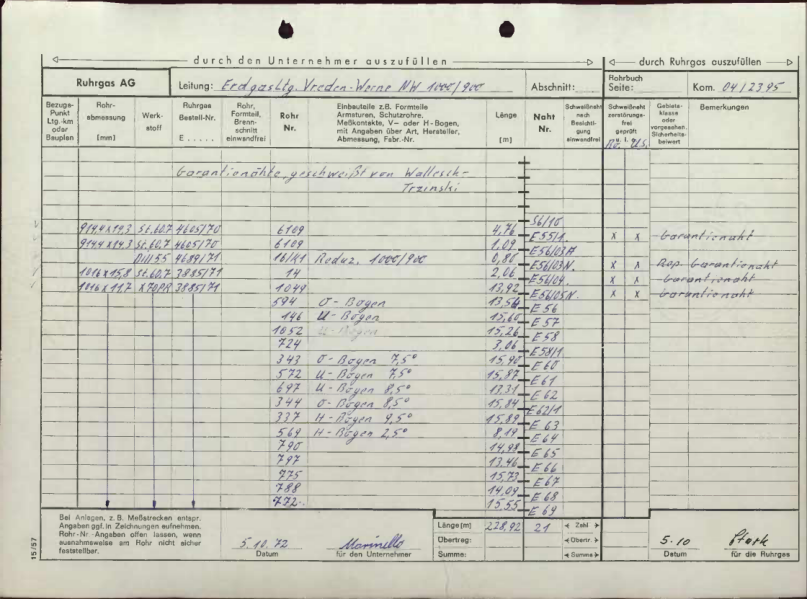 durch den Unternehmer auszufüllen
durch Ruhrgas auszufüllen
Ruhrgas AG
Leitung: Erdgasltg. Vreden-Werne NW 1000/900
Abschnitt:
Rohrbuch Seite:
Kom. 04/23.95
Bezugs-Punkt Ltg.-km oder Bauplan
Rohr-abmessung [mm]
Werk-stoff
Ruhrgas Bestell-Nr. E . . . . .
Rohr, Formteil, Brenn-schnitt einwandfrei
Rohr Nr.
Einbauteile z.B. Formteile Armaturen, Schutzrohre, Meßkontakte, V- oder H-Bogen, mit Angaben über Art, Hersteller, Abmessung, Fabr.-Nr.
Länge [m]
Naht Nr.
Schweißnaht nach Besichti-gung einwandfrei
Schweißnaht zerstörungs-frei geprüft
Rö. U.S.
Gebiets-klasse oder vorgesehen. Sicherheits-beiwert
Bemerkungen
Garantienähte, geschweißt von Wallesch-
Trzinski
S6/10
914,4x14,3 St.60.7 4605/70 6109 4,76 E55/1. x x Garantienaht
914,4x14,3 St.60.7 4605/70 6109 1,09 E56/03A
Dill 55 4689/71 16/41 Reduz. 1000/900 0,86 E56/03N. x x Rep. Garantienaht
1016x15,8 St.60.7 3885/71 14 2,06 E56/04. x x Garantienaht
1016x11,7 X70PR 3885/71 1049 13,92 E56/05N. x x Garantienaht
594 O-Bogen 13,54 E 56
146 U-Bogen 15,60 E 57
1052 U-Bogen 15,26 E 58
724 3,06 E58/1
343 O-Bogen 7,5° 15,90 E 60
572 U-Bogen 7,5° 15,87 E 61
697 U-Bogen 8,5° 13,31 E 62
344 O-Bogen 8,5° 15,84 E62/1
337 H-Bogen 9,5° 15,89 E 63
569 H-Bogen 2,5° 8,19 E 64
790 14,98 E 65
797 13,46 E 66
775 15,73 E 67
788 14,09 E 68
772 15,55 E 69
Bei Anlagen, z.B. Meßstrecken entspr.
Angaben ggf. in Zeichnungen aufnehmen.
Rohr-Nr.-Angaben offen lassen, wenn
ausnahmsweise am Rohr nicht sicher
feststellbar.
5.10.72
Datum
Marinello
für den Unternehmer
Länge [m] 228,92 21 Zahl
Übertrag: Übertr.
Summe: Summe
5.10
Datum
Stark
für die Ruhrgas
15/57